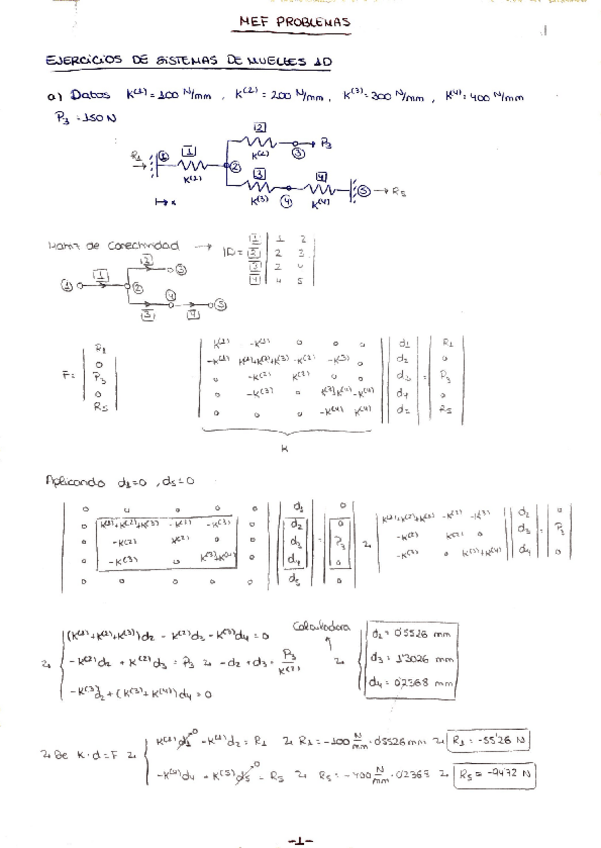 MEF PROBLEMAS
EJERCICIOS DE SISTEMAS DE MUELLES 1D
a) Datos K(1)=100 N/mm , K(2)=200 N/mm, K(3)=300 N/mm , K(4)=400 N/mm
P3 = 150 N
R1 1 K(1) 2 2 K(2) 3 P3
3 K(3) 4 4 K(4) 5 R5
x
→ ID = 1 | 1 2
2 | 2 3
3 | 2 4
4 | 4 5
1 1 2 2 3
3 4 4 5
F = | R1 0 P3 0 R5 |
K(1) -K(1) 0 0 0 | d1 | R1
-K(1) K(1)+K(2)+K(3) -K(2) -K(3) 0 | d2 | 0
0 -K(2) K(2) 0 0 | d3 | = P3
0 -K(3) 0 K(3)+K(4) -K(4) | d4 | 0
0 0 0 -K(4) K(4) | d5 | R5
K
Aplicando d1=0 , d5=0
0 0 0 0 0 | d1 | 0
0 K(1)+K(2)+K(3) -K(2) -K(3) 0 | d2 | 0
0 -K(2) K(2) 0 0 | d3 | = P3
0 -K(3) 0 K(3)+K(4) 0 | d4 | 0
0 0 0 0 0 | d5 | 0
K(1)+K(2)+K(3) -K(2) -K(3) | d2 | 0
-K(2) K(2) 0 | d3 | = P3
-K(3) 0 K(3)+K(4) | d4 | 0
Calculadora
(K(1)+K(2)+K(3))d2 - K(2)d3 - K(3)d4 = 0
-K(2)d2 + K(2)d3 = P3 -d2 + d3 = P3/K(2)
-K(3)d2 + (K(3)+K(4))d4 = 0
d2 = 0'5526 mm
d3 = 1'3026 mm
d4 = 0'2368 mm
De K·d=F
K(1)d1 0 - K(1)d2 = R1 R1 = -100 N/mm · 0'5526 mm R1 = -55'26 N
-K(4)d4 + K(5)d5 0 = R5 R5 = -400 N/mm · 0'2368 R5 = -94'72 N
-1-